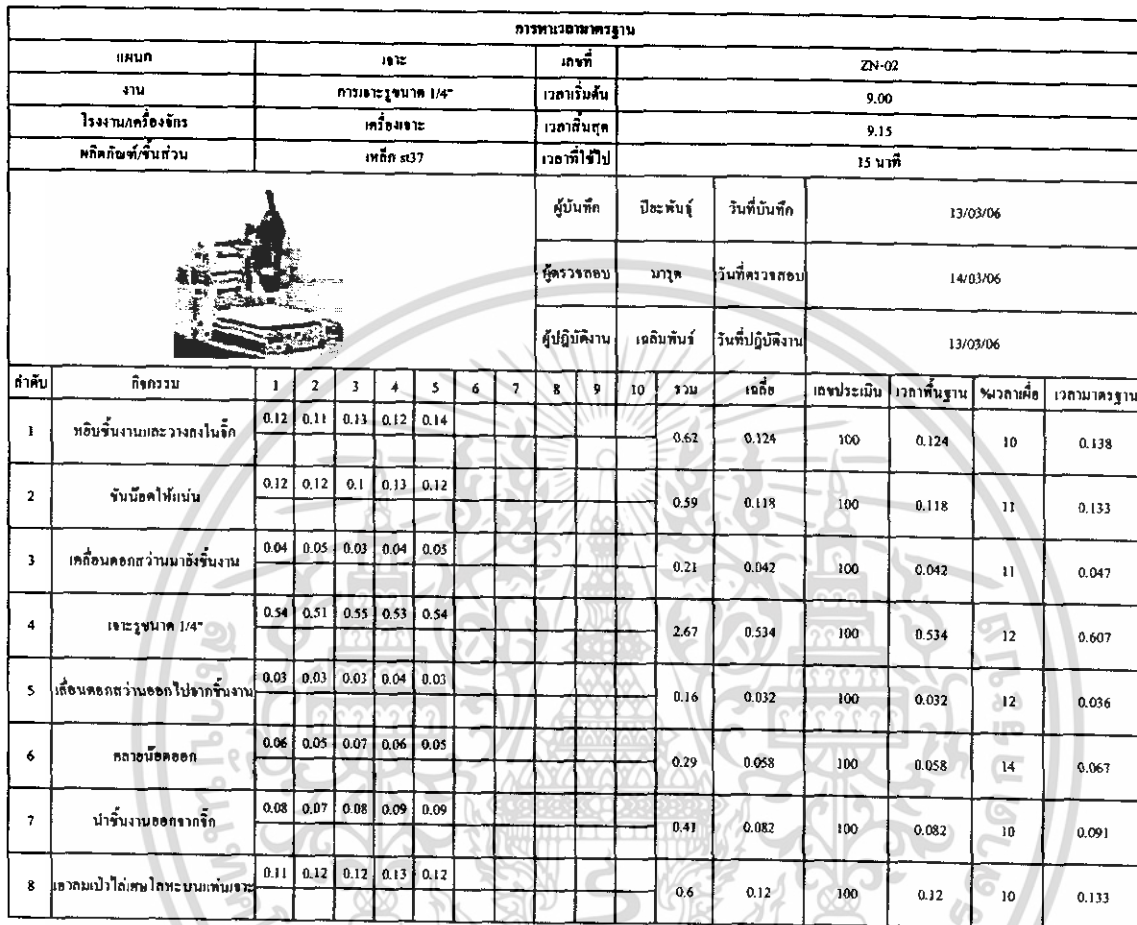 การหาเวลามาตรฐาน
แผนก เจาะ เลขที่ ZN-02
งาน การเจาะรูขนาด 1/4" เวลาเริ่มต้น 9.00
โรงงาน/เครื่องจักร เครื่องเจาะ เวลาสิ้นสุด 9.15
ผลิตภัณฑ์/ชิ้นส่วน เหล็ก st37 เวลาที่ใช้ไป 15 นาที
ผู้บันทึก ปิยะพันธุ์ วันที่บันทึก 13/03/06
ผู้ตรวจสอบ มารุต วันที่ตรวจสอบ 14/03/06
ผู้ปฎิบัติงาน เฉลิมพันธ์ วันที่ปฎิบัติงาน 13/03/06
ลำดับ กิจกรรม 1 2 3 4 5 6 7 8 9 10 รวม เฉลี่ย เลขประเมิน เวลาพื้นฐาน %เวลาเผื่อ เวลามาตรฐาน
1 หยิบชิ้นงานและวางลงในจิ๊ก 0.12 0.11 0.13 0.12 0.14 0.62 0.124 100 0.124 10 0.138
2 ขันน๊อตให้แน่น 0.12 0.12 0.1 0.13 0.12 0.59 0.118 100 0.118 11 0.133
3 เคลื่อนดอกสว่านมายังชิ้นงาน 0.04 0.05 0.03 0.04 0.05 0.21 0.042 100 0.042 11 0.047
4 เจาะรูขนาด 1/4" 0.54 0.51 0.55 0.53 0.54 2.67 0.534 100 0.534 12 0.607
5 เลื่อนดอกสว่านออกไปจากชิ้นงาน 0.03 0.03 0.03 0.04 0.03 0.16 0.032 100 0.032 12 0.036
6 คลายน๊อตออก 0.06 0.05 0.07 0.06 0.05 0.29 0.058 100 0.058 14 0.067
7 นำชิ้นงานออกจากจิ๊ก 0.08 0.07 0.08 0.09 0.09 0.41 0.082 100 0.082 10 0.091
8 เอาลมเป่าไล่เศษโลหะบนแท่นเจาะ 0.11 0.12 0.12 0.13 0.12 0.6 0.12 100 0.12 10 0.133